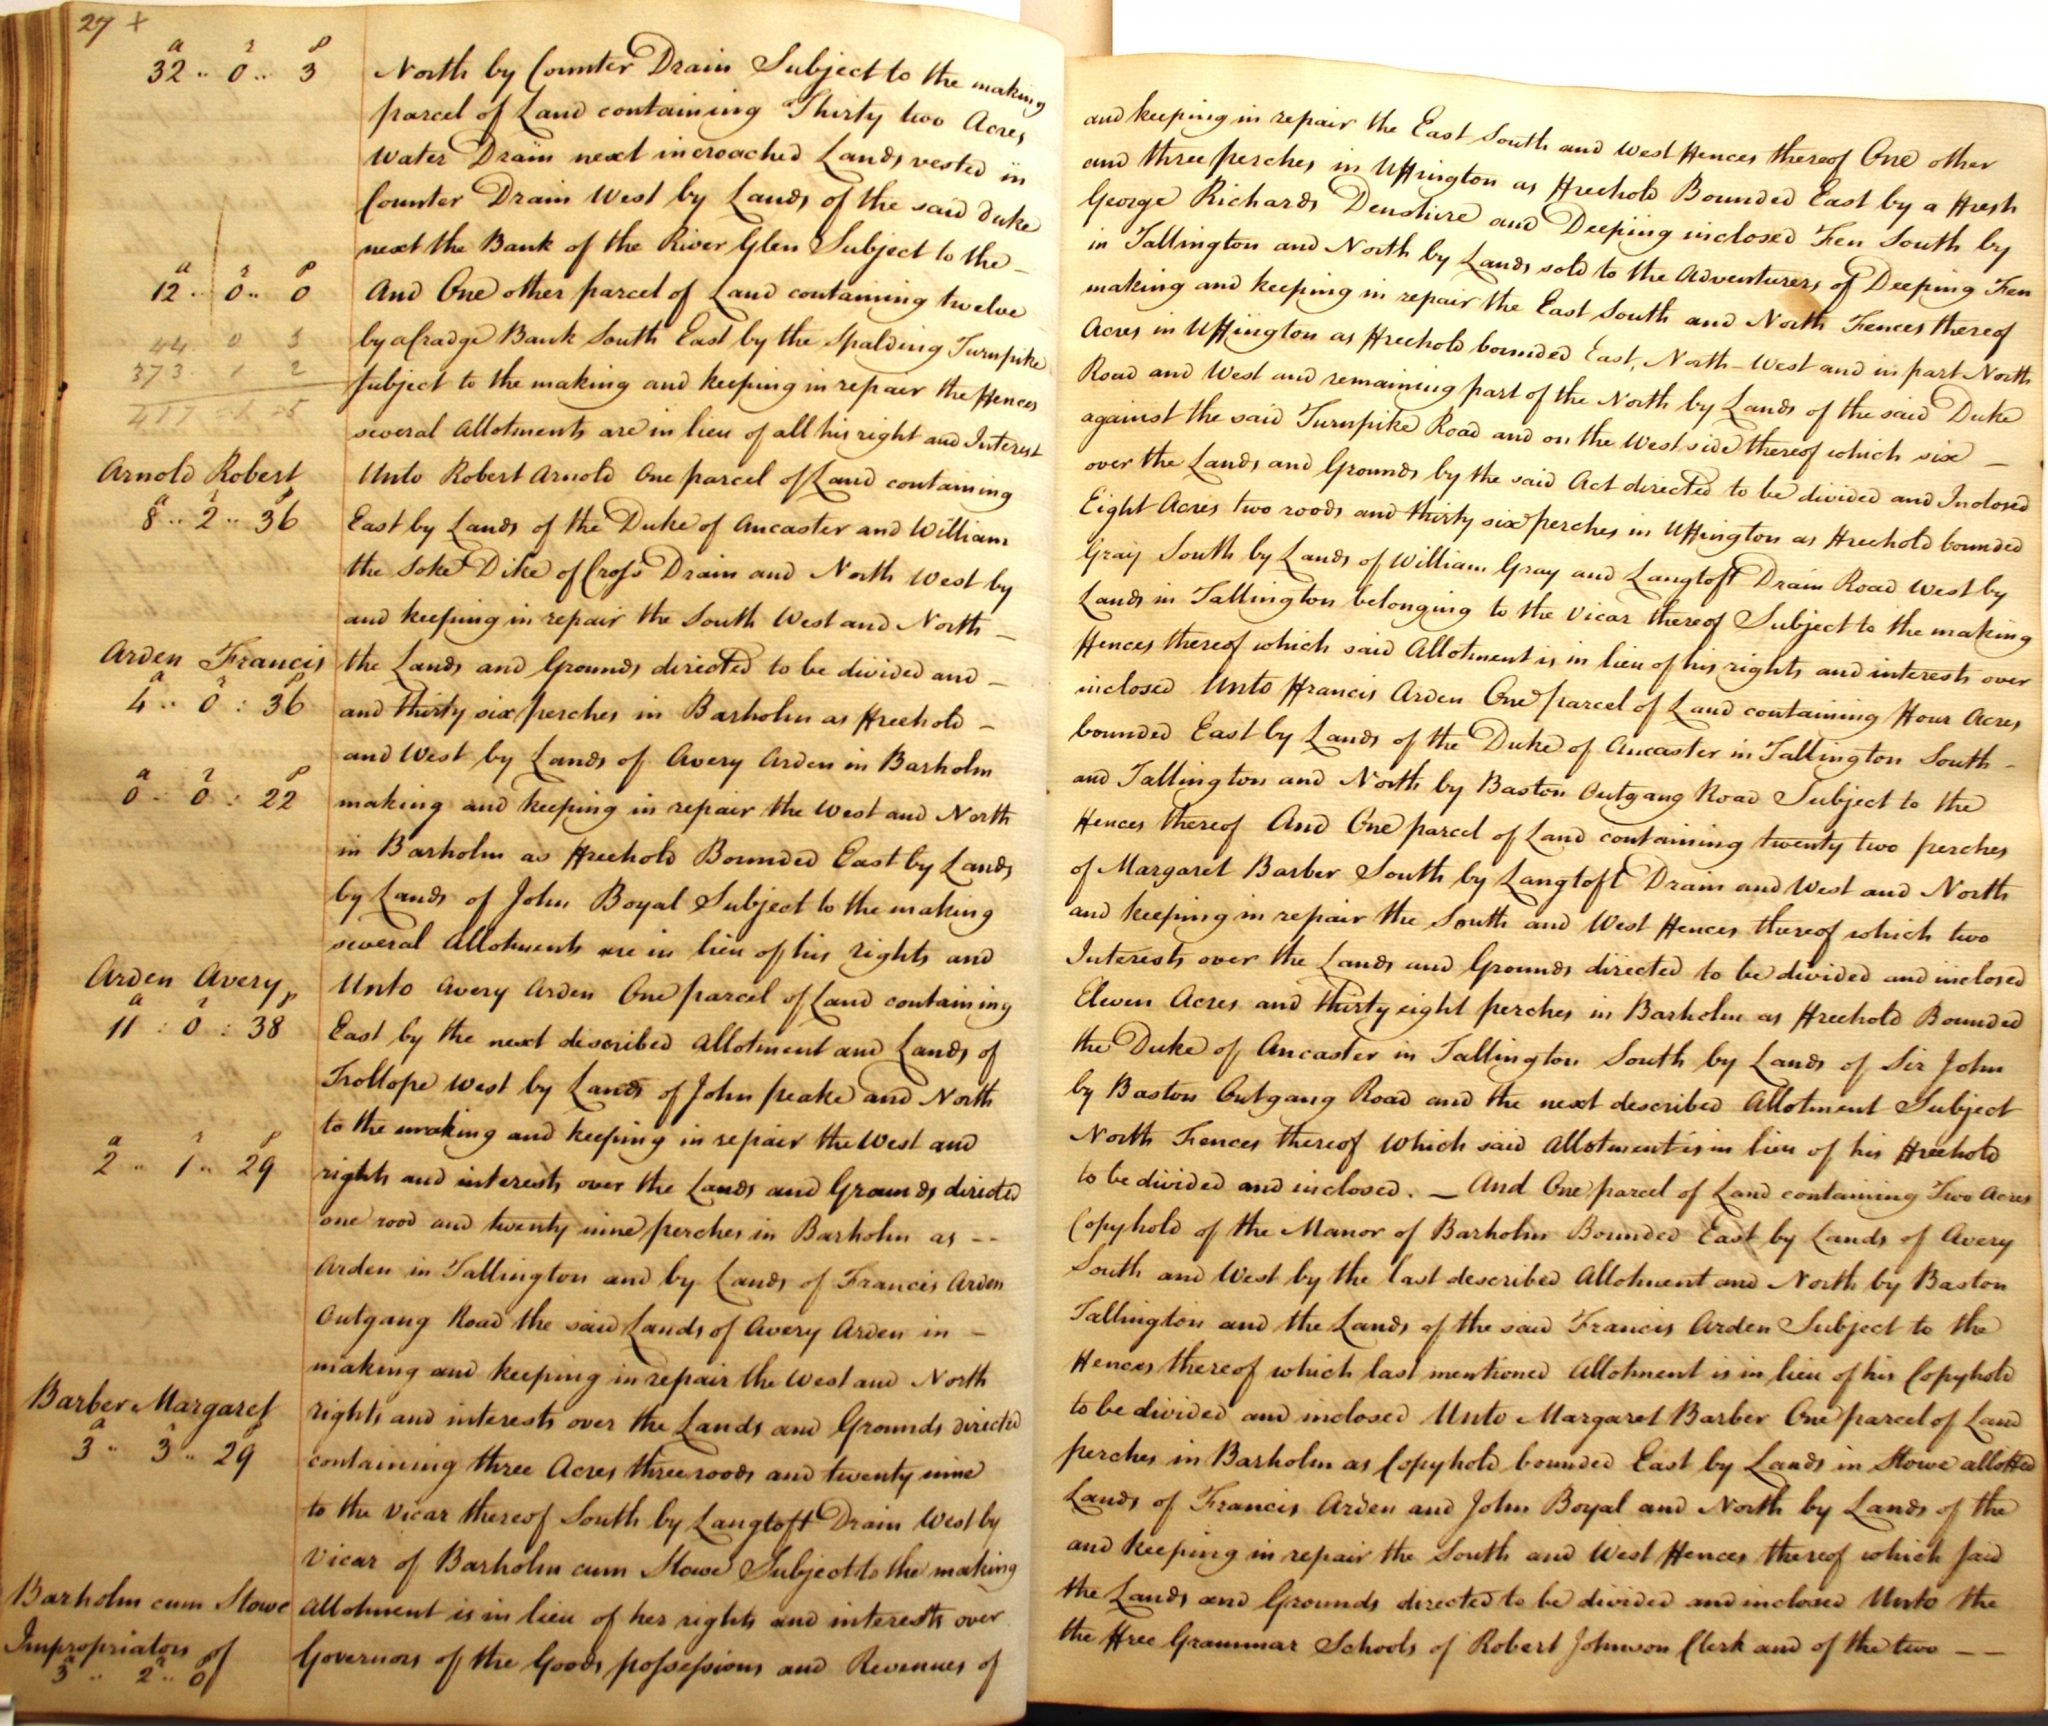 27 +
a r p
32 .. 0 .. 3
North by Counter Drain Subject to the making and keeping in repair the East South and West Fences thereof One other
parcel of Land containing Thirty two Acres and three perches in Uffington as Freehold Bounded East by a Fresh
Water Drain next incroached Lands vested in George Richards Denshire and Deeping inclosed Fen South by
Counter Drain West by Lands of the said Duke in Tallington and North by Lands sold to the Adventurers of Deeping Fen
next the Bank of the River Glen Subject to the making and keeping in repair the East South and North Fences thereof
a r p
12 .. 0 .. 0
And One other parcel of Land containing twelve Acres in Uffington as Freehold bounded East, North-West and in part North
44 0 3
by a Cradge Bank South East by the Spalding Turnpike Road and West and remaining part of the North by Lands of the said Duke
373 1 2
subject to the making and keeping in repair the Fences against the said Turnpike Road and on the West side thereof which six
417 1 5
several Allotments are in lieu of all his right and Interest over the Lands and Grounds by the said Act directed to be divided and Inclosed
Arnold Robert
Unto Robert Arnold One parcel of Land containing Eight Acres two roods and thirty six perches in Uffington as Freehold bounded
a r p
8 .. 2 .. 36
East by Lands of the Duke of Ancaster and William Gray South by Lands of William Gray and Langtoft Drain Road West by
the Soke Dike of Cross Drain and North West by Lands in Tallington belonging to the Vicar thereof Subject to the making
and keeping in repair the South West and North Fences thereof which said Allotment is in lieu of his rights and interests over
Arden Francis
the Lands and Grounds directed to be divided and inclosed Unto Francis Arden One parcel of Land containing Four Acres
a r p
4 .. 0 : 36
and thirty six perches in Barholm as Freehold bounded East by Lands of the Duke of Ancaster in Tallington South
and West by Lands of Avery Arden in Barholm and Tallington and North by Baston Outgang Road Subject to the
a r p
0 : 0 : 22
making and keeping in repair the West and North Fences thereof And One parcel of Land containing twenty two perches
in Barholm as Freehold Bounded East by Lands of Margaret Barber South by Langtoft Drain and West and North
by Lands of John Boyal Subject to the making and keeping in repair the South and West Fences thereof which two
several Allotments are in lieu of his rights and Interests over the Lands and Grounds directed to be divided and inclosed
Arden Avery
Unto Avery Arden One parcel of Land containing Eleven Acres and thirty eight perches in Barholm as Freehold Bounded
a r p
11 : 0 : 38
East by the next described Allotment and Lands of the Duke of Ancaster in Tallington South by Lands of Sir John
Trollope West by Lands of John peake and North by Baston Outgang Road and the next described Allotment Subject
to the making and keeping in repair the West and North Fences thereof Which said Allotment is in lieu of his Freehold
a r p
2 .. 1 .. 29
rights and interests over the Lands and Grounds directed to be divided and inclosed. — And One parcel of Land containing Two Acres
one rood and twenty nine perches in Barholm as -- Copyhold of the Manor of Barholm Bounded East by Lands of Avery
Arden in Tallington and by Lands of Francis Arden South and West by the last described Allotment and North by Baston
Outgang Road the said Lands of Avery Arden in - Tallington and the Lands of the said Francis Arden Subject to the
making and keeping in repair the West and North Fences thereof which last mentioned Allotment is in lieu of his Copyhold
Barber Margaret
rights and interests over the Lands and Grounds directed to be divided and inclosed Unto Margaret Barber One parcel of Land
a r p
3 .. 3 .. 29
containing three Acres three roods and twenty nine perches in Barholm as Copyhold bounded East by Lands in Stowe allotted
to the Vicar thereof South by Langtoft Drain West by Lands of Francis Arden and John Boyal and North by Lands of the
Vicar of Barholm cum Stowe Subject to the making and keeping in repair the South and West Fences thereof which said
Barholm cum Stowe
Allotment is in lieu of her rights and interests over the Lands and Grounds directed to be divided and inclosed Unto the
Impropriators of
Governors of the Goods possessions and Revenues of the Free Grammar Schools of Robert Johnson Clerk and of the two --
a r p
3 .. 2 .. 0